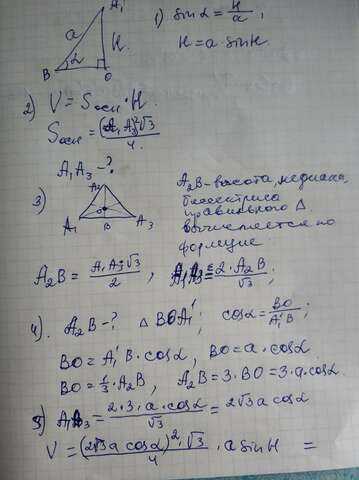 A₁'
a
H
α
B
O
1) sin α = H/a ;
H = a · sin H.
2) V = Sосн · H.
Sосн = (A₁A₃)²√3/4.
A₁A₃ - ?
3)
A₂
A₁
O
B
A₃
A₂B - высота, медиана,
биссектриса
правильного Δ.
вычисляется по
формуле:
A₂B = A₁A₃·√3/2 , A₁A₃ = 2·A₂B/√3 ;
4). A₂B - ? Δ BOA₁' ; cos α = BO/A₁'B ;
BO = A₁'B · cos α , BO = a · cos α
BO = 1/3 · A₂B , A₂B = 3 · BO = 3 · a · cos α.
5) A₁A₃ = 2·3·a·cos α/√3 = 2√3 a cos α
V = (2√3 a cos α)²·√3/4 · a sin H =